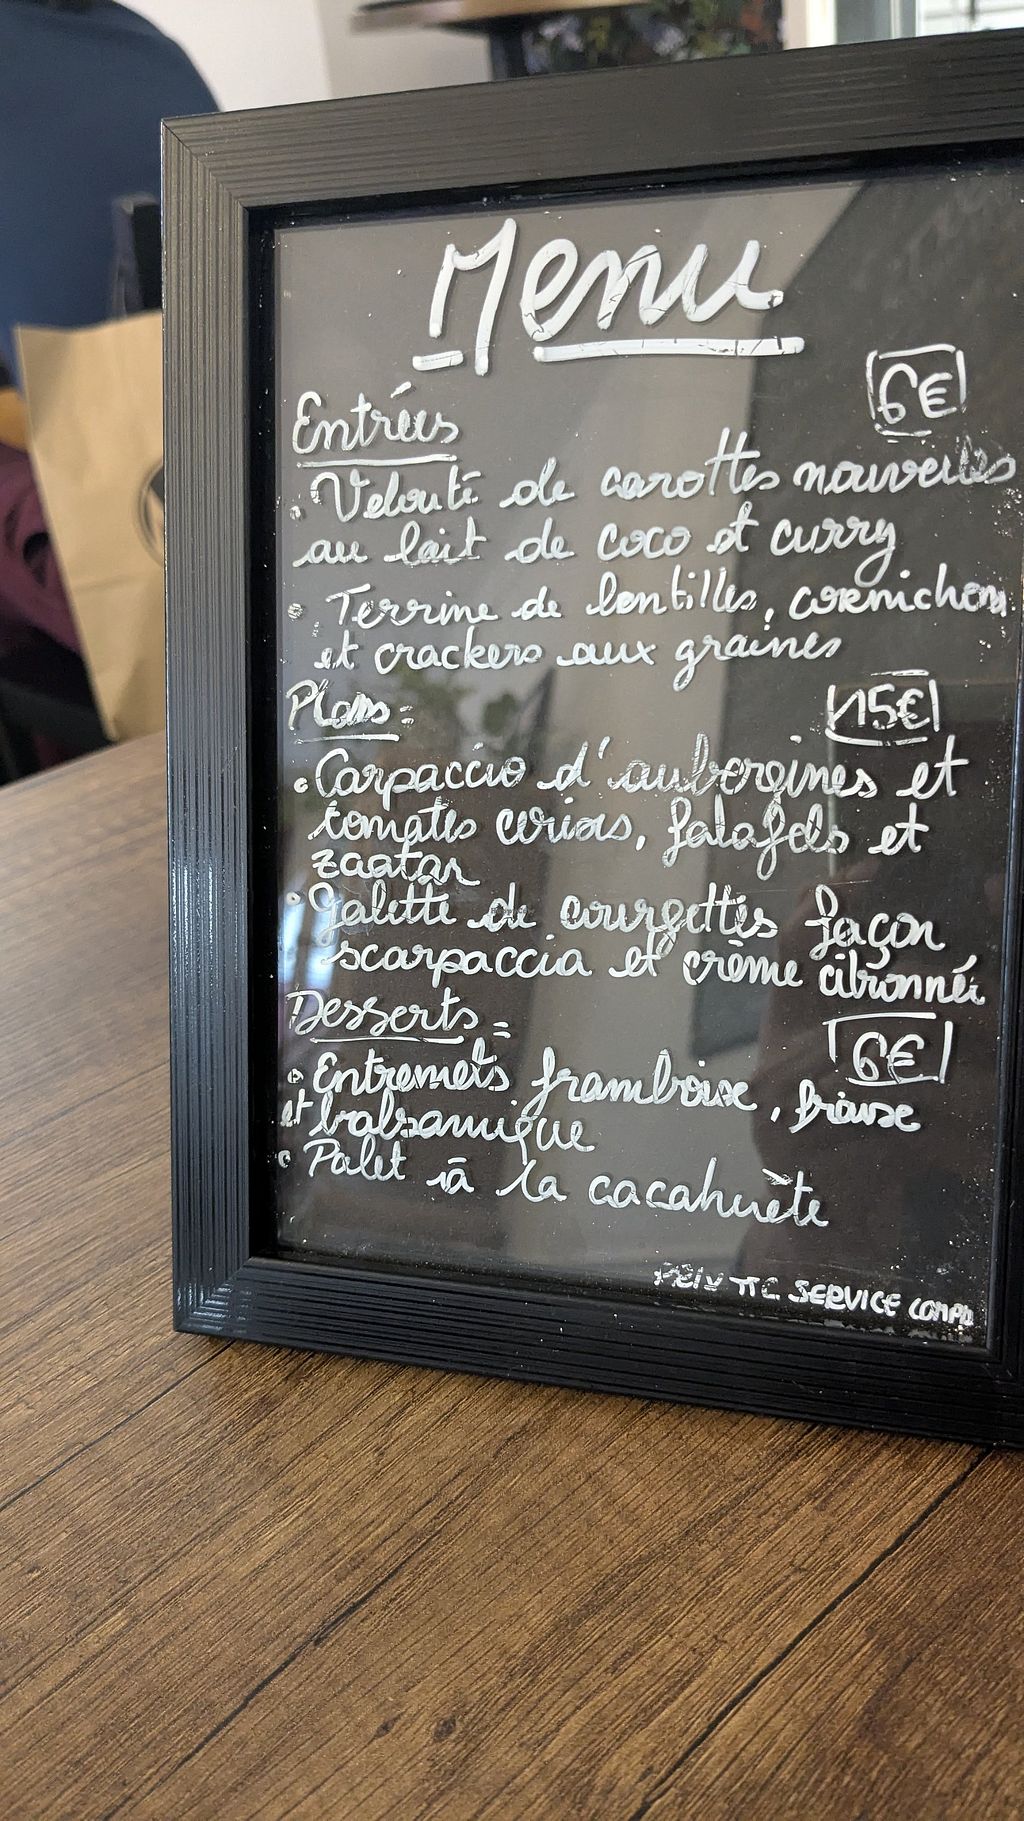 Menu
6€
Entrées
• Velouté de carottes nouvelles
au lait de coco et curry
• Terrine de lentilles, cornichons
et crackers aux graines
Plats:
15€
• Carpaccio d'aubergines et
tomates cerises, falafels et
zaatar
• Galette de courgettes façon
scarpaccia et crème citronnée
Desserts:
6€
• Entremets framboise, fraise
et balsamique
• Palet à la cacahuète
PRIX TTC SERVICE COMPRIS